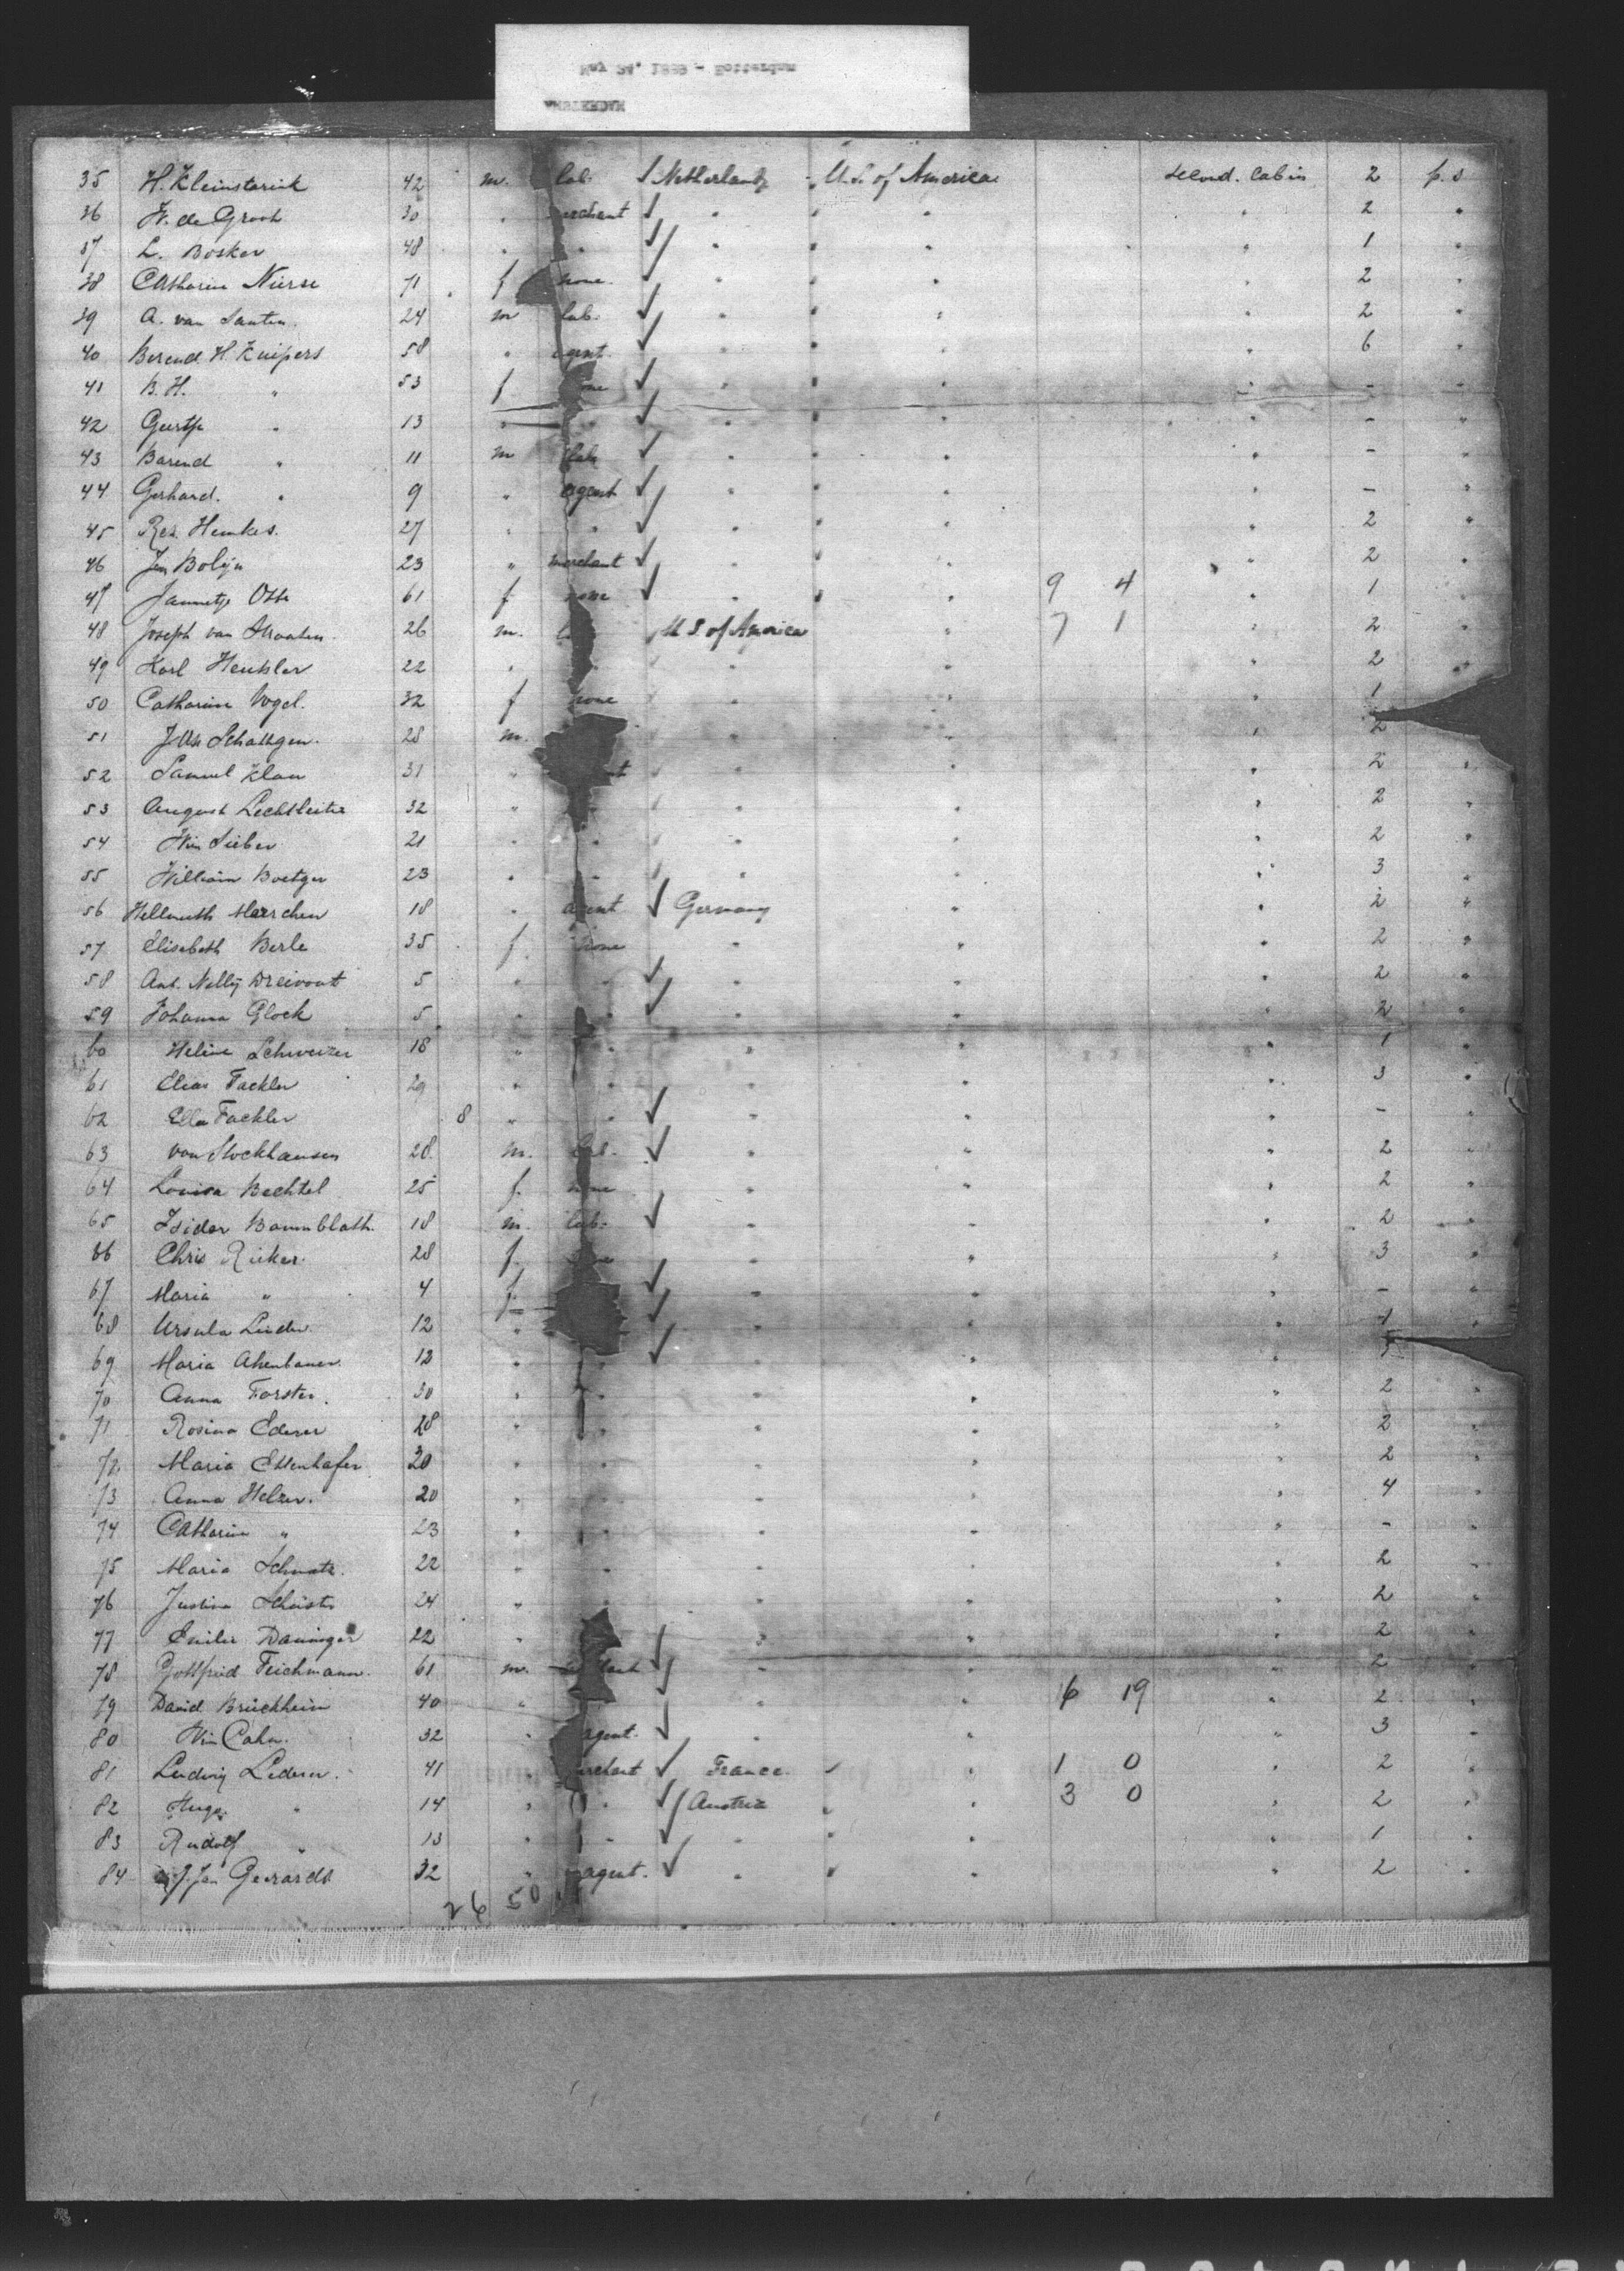 May 24, 1889 - Rotterdam
AMSTERDAM
35 H. Kleinsterink 42 m. lab. √ Netherlands U.S. of America second. Cabin 2 p. s
36 W. de Groot 30 " merchant √ " " " " 2 "
37 L. Bosker 48 " " √ " " " " 1 "
38 Catharine Nierse 71 f none. " " " " 2 "
39 A. van Santen. 24 m lab. √ " " " " 2 "
40 Berend. H. Kuipers 58 " agent. √ " " " " 6 "
41 B. H. " 53 f none √ " " " " - "
42 Geertje " 13 " " √ " " " " - "
43 Barend " 11 m lab √ " " " " - "
44 Gerhard. " 9 " agent √ " " " " - "
45 Hemkes. 27 " " √ " " " " 2 "
46 Jan Bolijn 23 " merchant √ " " " " 2 "
47 Jannetje Otte 61 f none √ " " " 9 4 " 1 "
48 Joseph van Straaten. 26 m. U.S. of America " 7 1 " 2 "
49 Karl Hentsler 22 " " " " 2 "
50 Catharine Vogel. 32 f none " " " 1
51 Schattgen. 28 m. " " " 2
52 Samuel Klau 31 " " " " 2 "
53 August Lechtleiter 32 " " " " 2 "
54 Wm Sieber 21 " " " " " 2 "
55 William Boetger 23 " " " " " 3 "
56 Hellmuth Maerchen 18 " agent √ Germany " " 2 "
57 Elisabeth Berle 35 f none " " " 2 "
58 Ant. Nellij Dreivont 5 " " √ " " " 2 "
59 Johanna Glock 5 " " √ " " " 2 "
60 Heline Schweizer 18 " " " " " 1 "
61 Elias Fackler 29 " " " " " 3 "
62 Ella Fackler 8 " " √ " " " - "
63 von Stockhausen 28. m. lab. √ " " " 2 "
64 Louisa Bechtel 25 f. none " " " 2 "
65 Isidor Baumblath. 18 m. lab. √ " " " 2 "
66 Chris Ricker. 28 f. none " " " 3 "
67 Maria " 4 f. √ " " " - "
68 Ursula 12 " √ " " "
69 Maria 12 " " √ " " " "
70 Anna Forster. 30 " " " " " 2 "
71 Rosina Ederer 28 " " " " " 2 "
72 Maria Ettenhafer 20 " " " " " 2 "
73 Anna Helzer. 20 " " " " " 4 "
74 Catharine " 23 " " " " " - "
75 Maria 22 " " " " " 2 "
76 Justina 24 " " " " 2 "
77 Emilie Daninger 22 " √ " " 2 "
78 Gottfried Teichmann. 61 m. √ " " " 2 "
79 David Brückheim 40 " " " 6 19 " 2 "
80 Wm Cahn. 32 " agent. √ " " " 3 "
81 Ludwig Lederer. 41 " merchant √ France. " " 1 0 " 2 "
82 Hugo. " 14 " " √ Austria " " 3 0 " 2 "
83 Rudolf " 13 " " √ " " " " 1 "
84 Jan Gerards 32 " agent. √ " " " " 2 "
26 50